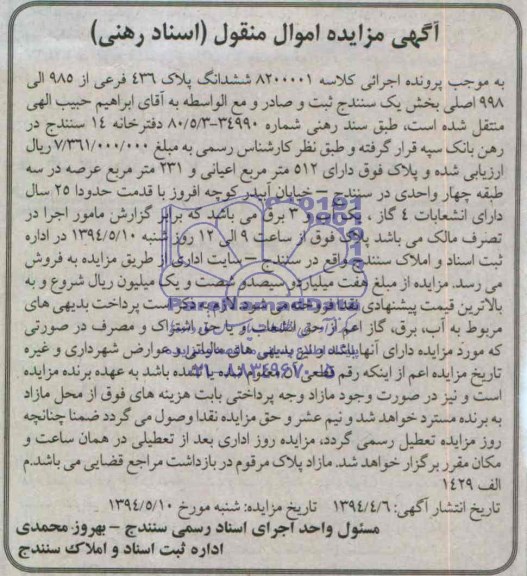 آگهی مزایده اموال منقول (اسناد رهنی)
به موجب پرونده اجرائی کلاسه ۸۲۰۰۰۰۱ ششدانگ پلاک ۴۳۶ فرعی از ۹۸۵ الی
۹۹۸ اصلی بخش یک سنندج ثبت و صادر و مع الواسطه به آقای ابراهیم حبیب الهی
منتقل شده است، طبق سند رهنی شماره ۳۴۹۹۰-۸۰/۵/۳ دفترخانه ۱۴ سنندج در
رهن بانک سپه قرار گرفته و طبق نظر کارشناس رسمی به مبلغ ۷/۳۶۱/۰۰۰/۰۰۰ ریال
ارزیابی شده و پلاک فوق دارای ۵۱۲ متر مربع اعیانی و ۲۳۱ متر مربع عرصه در سه
طبقه چهار واحدی در سنندج – خیابان آبیدر کوچه افروز با قدمت حدودا ۲۵ سال
دارای انشعابات ۴ گاز ، یک و ۳ برق می باشد که برابر گزارش مامور اجرا در
تصرف مالک می باشد پلاک فوق از ساعت ۹ الی ۱۲ روز شنبه ۱۳۹۴/۵/۱۰ در اداره
ثبت اسناد و املاک سنندج واقع در سنندج – سایت اداری از طریق مزایده به فروش
می رسد. مزایده از مبلغ هفت میلیارد و سیصد و شصت و یک میلیون ریال شروع و به
بالاترین قیمت پیشنهادی نقدا فروخته می شود لازم به ذکر است پرداخت بدیهی های
مربوط به آب، برق، گاز اعم از حق انشعاب و یا حق اشتراک و مصرف در صورتی
که مورد مزایده دارای آنها باشد و نیز بدیهی های مالیاتی و عوارض شهرداری و غیره
تاریخ مزایده اعم از اینکه رقم قطعی آن معلوم شده یا نشده باشد به عهده برنده مزایده
است و نیز در صورت وجود مازاد وجه پرداختی بابت هزینه های فوق از محل مازاد
به برنده مسترد خواهد شد و نیم عشر و حق مزایده نقدا وصول می گردد ضمنا چنانچه
روز مزایده تعطیل رسمی گردد، مزایده روز اداری بعد از تعطیلی در همان ساعت و
مکان مقرر برگزار خواهد شد. مازاد پلاک مرقوم در بازداشت مراجع قضایی می باشد.م
الف ۱۴۲۹
تاریخ انتشار آگهی: ۱۳۹۴/۴/۶ تاریخ مزایده: شنبه مورخ ۱۳۹۴/۵/۱۰
مسئول واحد اجرای اسناد رسمی سنندج – بهروز محمدی
اداره ثبت اسناد و املاک سنندج
ParsNamadData
۰۲۱-۸۸۳۴۹۶۷۰-۵